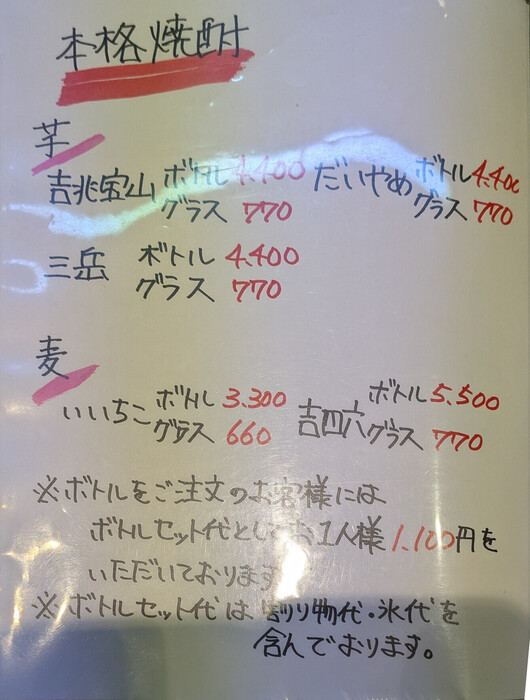 本格焼酎
芋
吉兆宝山 ボトル 4.400 だいやめ ボトル 4.400
グラス 770 グラス 770
三岳 ボトル 4.400
グラス 770
麦
いいちこ ボトル 3.300 吉四六 ボトル 5.500
グラス 660 グラス 770
※ボトルをご注文のお客様には
ボトルセット代としてお1人様1.100円を
いただいております
※ボトルセット代は 割り物代・氷代を
含んでおります。